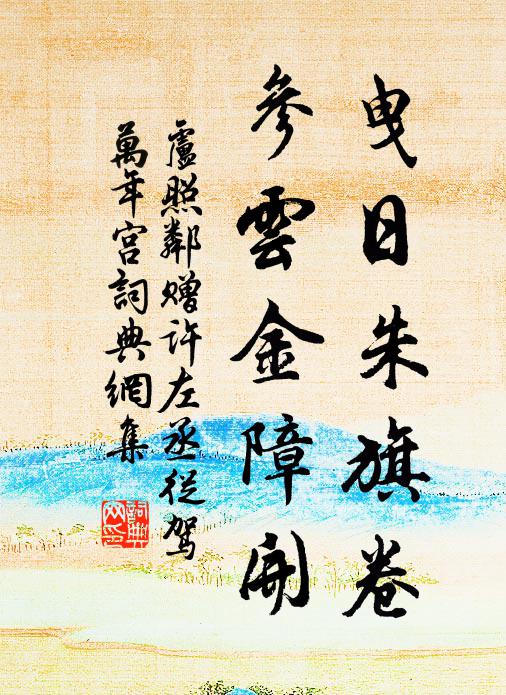 曳日朱旗卷
參雲金障開
盧照鄰贈许左丞從駕
萬年宮詞典網集
詞典